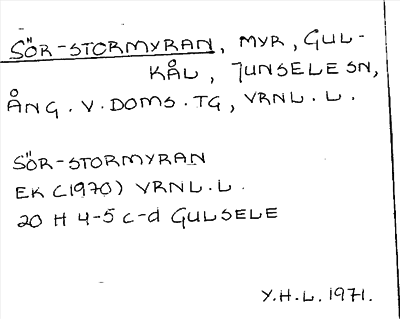 SÖR-STORMYRAN, MYR, GUL-
KÅL, JUNSELE SN,
ÅNG. V. DOMS. TG, VRNL. L.
SÖR-STORMYRAN
EK (1970) VRNL. L.
20 H 4-5 c-d GULSELE
Y.H.L. 1971.